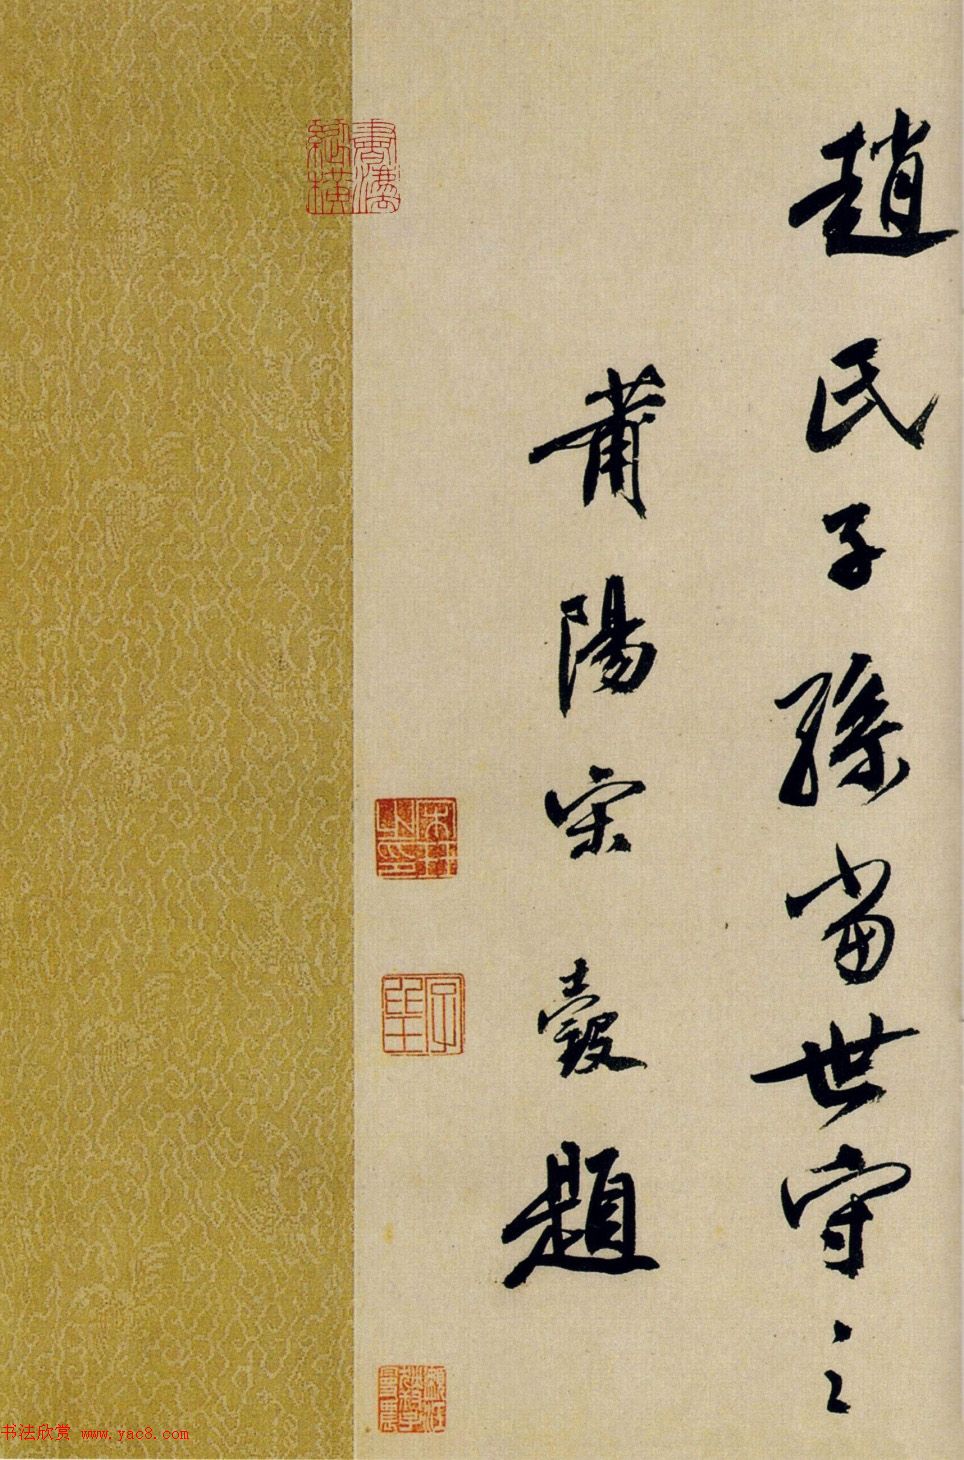 趙氏子孫當世守之
莆陽宋瑴題
書灋縱橫
書法欣赏 www.yac8.com